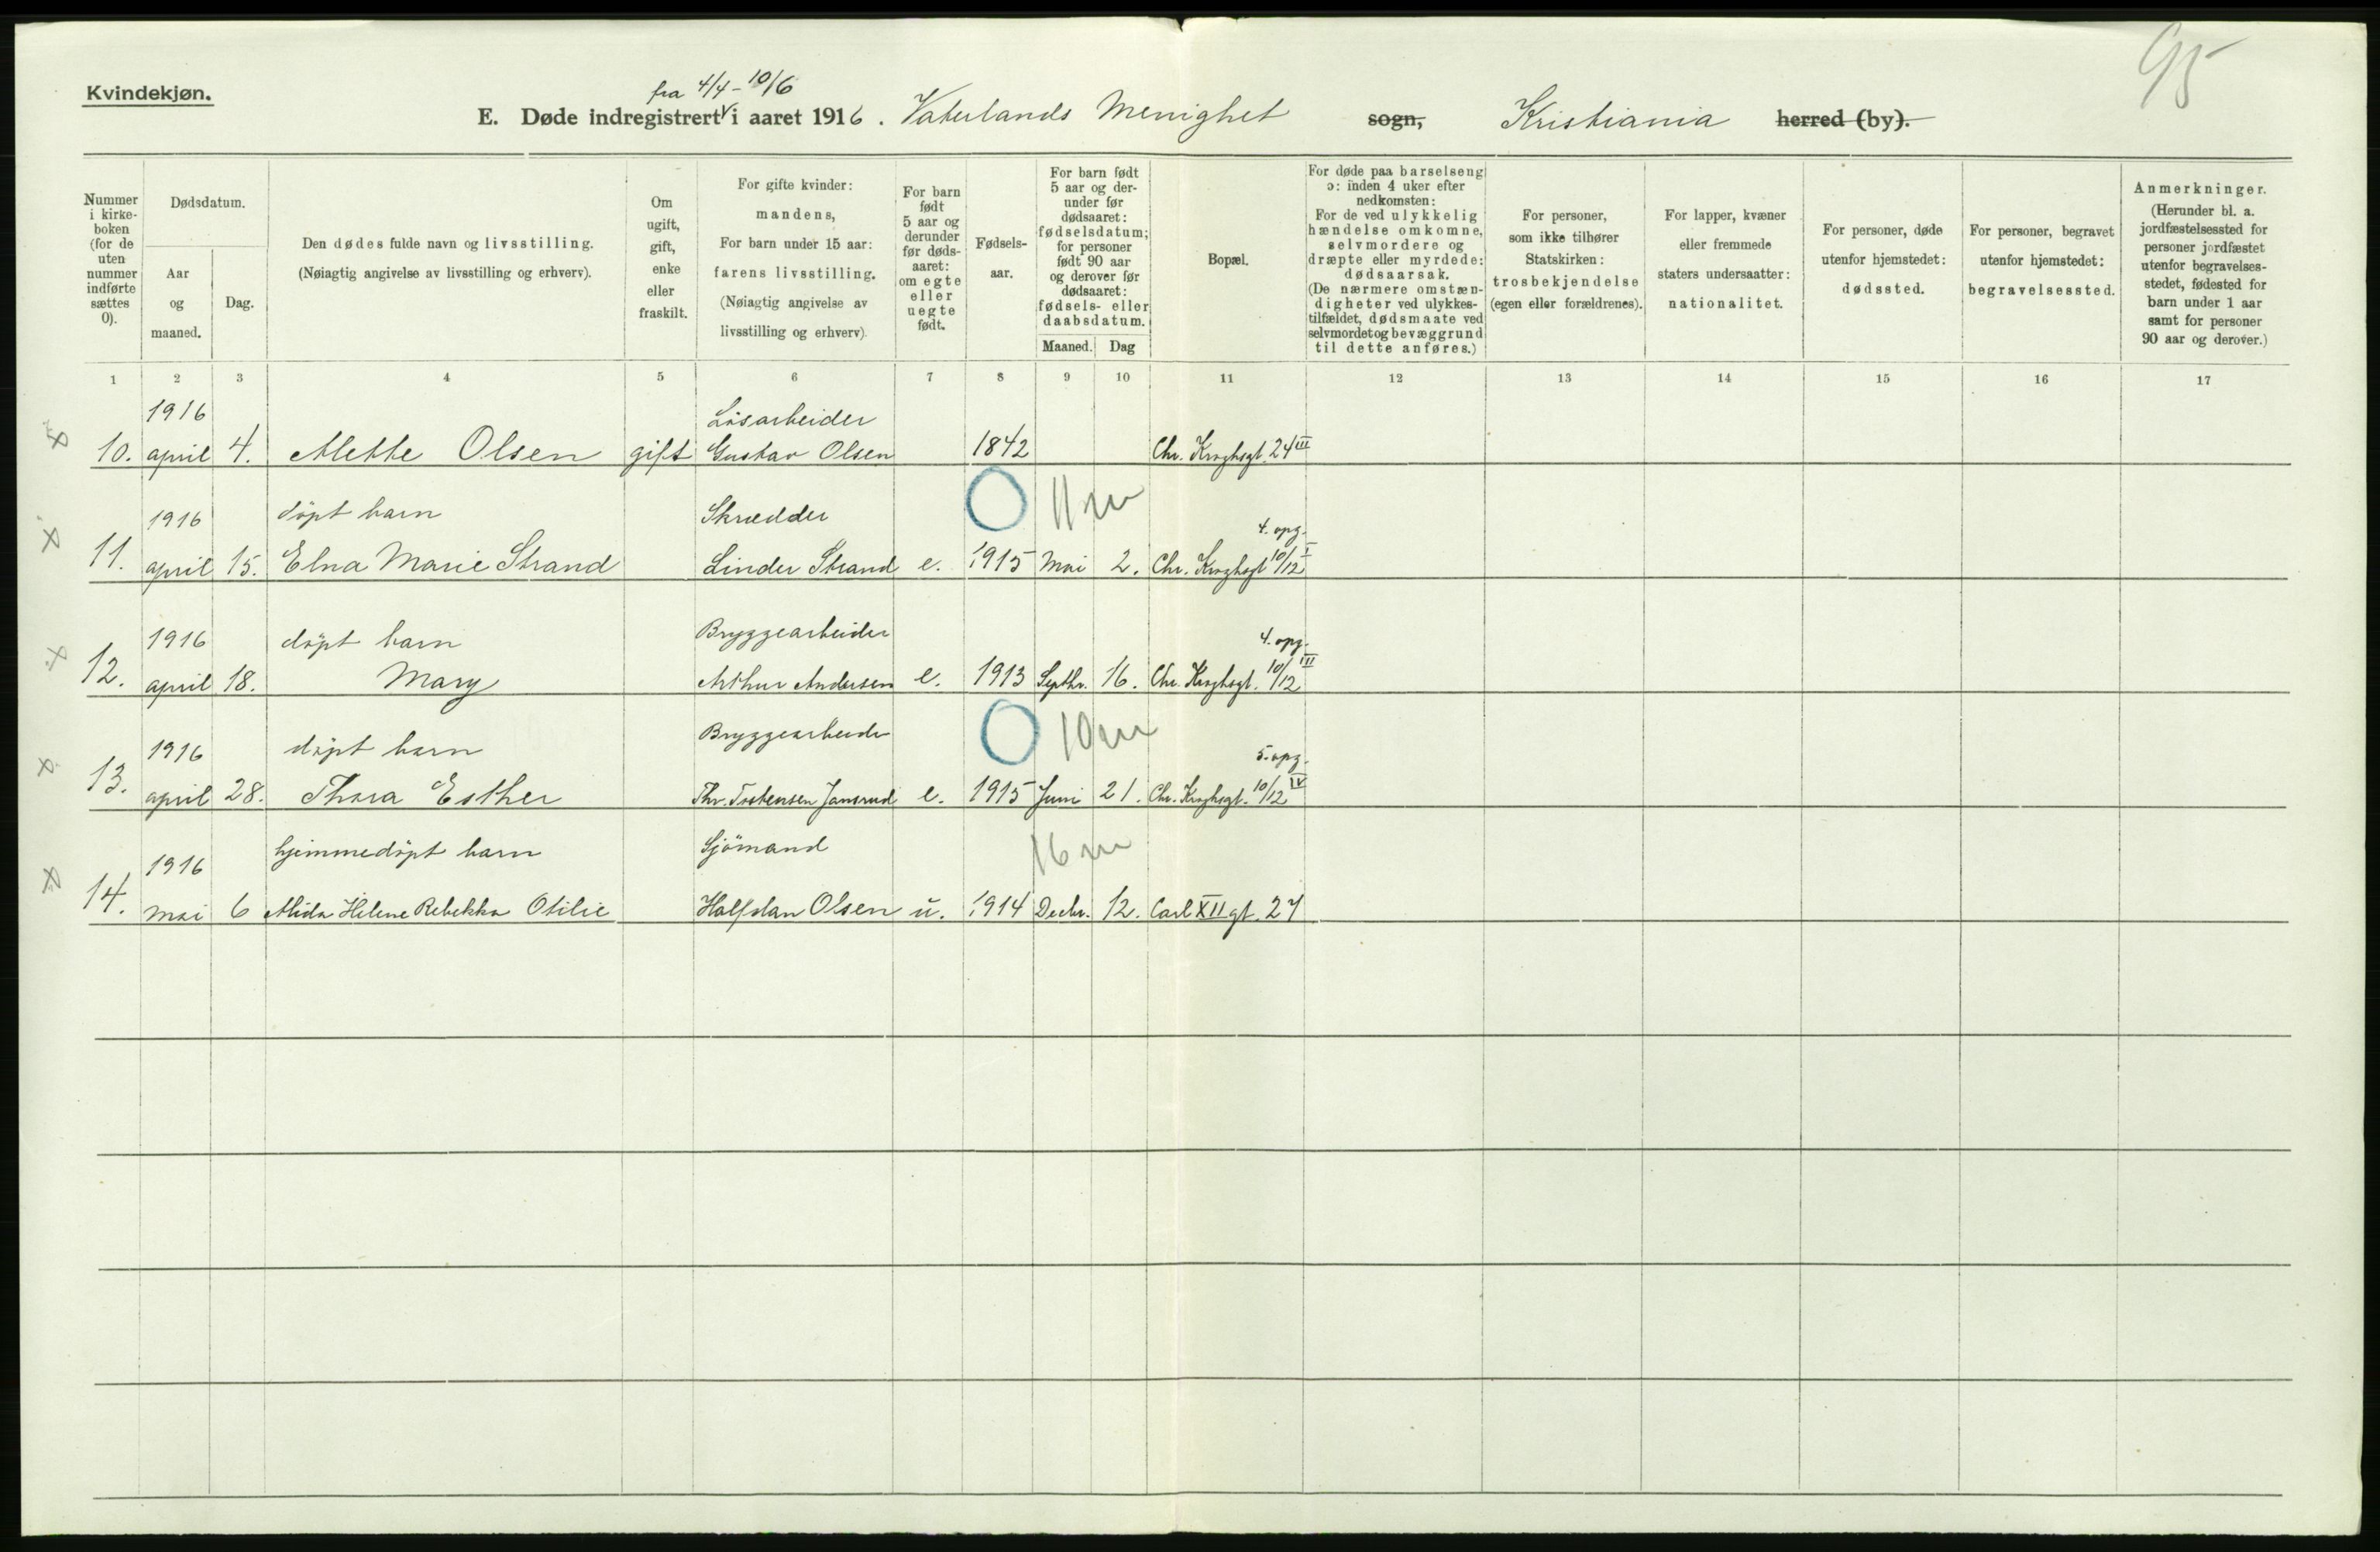 95
Kvindekjøn.
fra 4/4 - 10/6
E. Døde indregistrert i aaret 1916. Vaterlands Menighet sogn, Kristiania herred (by).
Nummer i kirke-boken (for de uten nummer indførte sættes 0).
Dødsdatum.
Aar og maaned.
Dag.
Den dødes fulde navn og livsstilling.
(Nøiagtig angivelse av livsstilling og erhverv).
Om ugift, gift, enke eller fraskilt.
For gifte kvinder: mandens,
For barn under 15 aar: farens livsstilling.
(Nøiagtig angivelse av livsstilling og erhverv).
For barn født 5 aar og derunder før døds-aaret: om egte eller uegte født.
Fødsels-aar.
For barn født 5 aar og der-under før dødsaaret: fødselsdatum; for personer født 90 aar og derover før dødsaaret: fødsels- eller daabsdatum.
Maaned. Dag
Bopæl.
For døde paa barselseng ɔ: inden 4 uker efter nedkomsten:
For de ved ulykkelig hændelse omkomne, selvmordere og dræpte eller myrdede: dødsaarsak.
(De nærmere omstæn-digheter ved ulykkes-tilfældet, dødsmaate ved selvmordet og bevæggrund til dette anføres.)
For personer, som ikke tilhører Statskirken: trosbekjendelse (egen eller forældrenes).
For lapper, kvæner eller fremmede staters undersaatter: nationalitet.
For personer, døde utenfor hjemstedet: dødssted.
For personer, begravet utenfor hjemstedet: begravelsessted.
Anmerkninger.
(Herunder bl. a. jordfæstelsessted for personer jordfæstet utenfor begravelses-stedet, fødested for barn under 1 aar samt for personer 90 aar og derover.)
1 2 3 4 5 6 7 8 9 10 11 12 13 14 15 16 17
1916 Løsarbeider
10. april 4. Alette Olsen gift Gustav Olsen 1842 Chr. Kroghsgt. 24 III
1916 døpt barn Skrædder 0 11 m 4. opg.
11. april 15. Elna Marie Strand Linder Strand e. 1915 Mai 2. Chr. Kroghsgt 10/12 I
1916 døpt barn Bryggearbeider 4. opg.
12. april 18. Mary Arthur Andersen e. 1913 Septbr. 16. Chr. Kroghsgt. 10/12 III
1916 døpt barn Bryggearbeider 0 10 m 5. opg.
13. april 28. Thora Esther Thv. Torstensen Jansrud e. 1915 Juni 21. Chr. Kroghsgt. 10/12 IV
1916 hjemmedøpt barn Sjömand 16 m
14. mai 6 Alida Helene Rebekka Otilie Halfdan Olsen u. 1914 Decbr. 12. Carl XII gt. 27